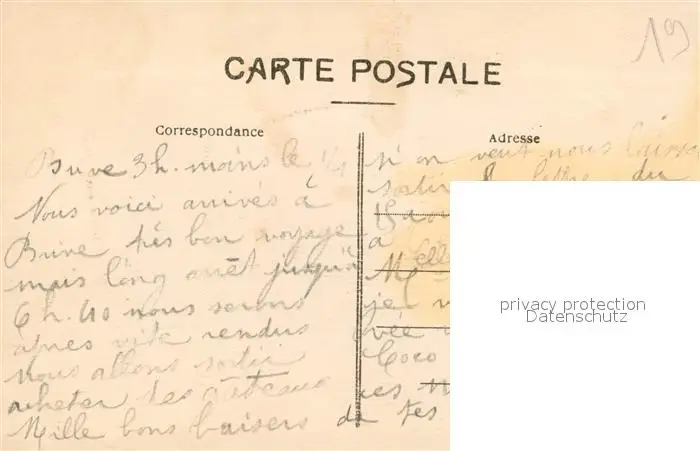 19
CARTE POSTALE
Correspondance
Brive 3h. moins le 1/4
Nous voici arrivés à
Brive très bon voyage
mais long arrêt jusqu'à
6 h. 40 nous serons
après vite rendus
Nous allons sortir
acheter des gâteaux
Mille bons baisers de tes
Adresse
si on veut nous laisser
sortir lettre du
à
Melle
je
Coco
privacy protection
Datenschutz